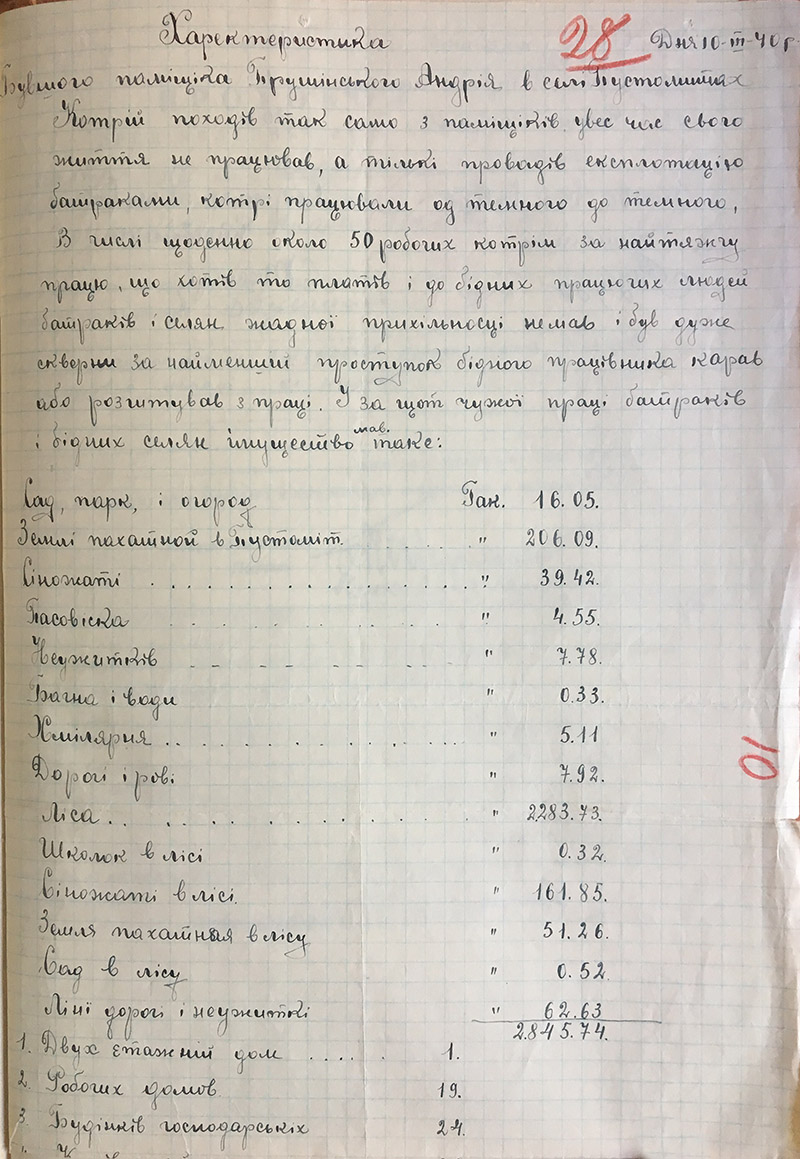 Характеристика 28 Дня 10-III-40 р
Бувшого поміщіка Прушінського Андрія в селі Пустомитах
Котрій походів так само з поміщіків увес час свого
життя не працював, а тількі провадів експлотацію
батраками, котрі працювали од темного до темного,
В числі щоденно около 50 робочих котрім за найтяжчу
працю, що хотів то платів і до бідних працюючих людей
батраків і селян жадної прихільносці немав і був дуже
скверни за найменший проступок бідного працівника карав
або розчитував з праці. І за щот чужої праці батраків
і бідних селян імущество мав. таке:
Сад, парк, і огород Гак. 16.05.
Землі пахатной в Пустоміт. . . . . . " 206.09.
Сіножаті . . . . . . . . . . . . . . . " 39.42.
Пасовіска . . . . . . . . " 4.55.
Неужитків _ _ _ _ _ _ _ " 7.78.
Багна і води " 0.33.
Хмілярня . . . . . . . . . . . . . . " 5.11
Дорогі і рові " 7.92.
Ліса . . . . . . . . . . . . " 2283.73.
Школок в лісі " 0.32.
Сіножаті в лісі. " 161.85.
Земля пахатная в лісу " 51.26.
Сад в лісу " 0.52.
Ліні дорогі і неужиткі " 62.63
2845.74.
10
1. Двух етажній дом . . . . . 1.
2. Робочих домов 19.
3. Будінків господарськіх 24.